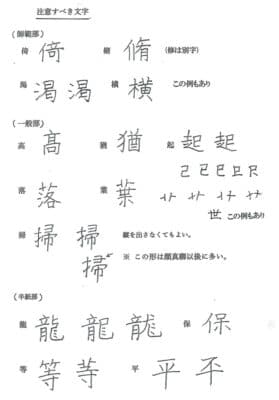 注意すべき文字
(師範部)
倚 倚 脩 脩 (修は別字)
渇 渇 渇 横 横 この例もあり
(一般部)
高 髙 猶 猶 起 起 起
己 已 巳
落 落 葉 葉
世 この例もあり
掃 掃 掃 縦を出さなくてもよい。
掃 ※ この形は顔真卿以後に多い。
(半紙部)
龍 龍 龍 龍 保 保
等 等 䓁 平 平 平